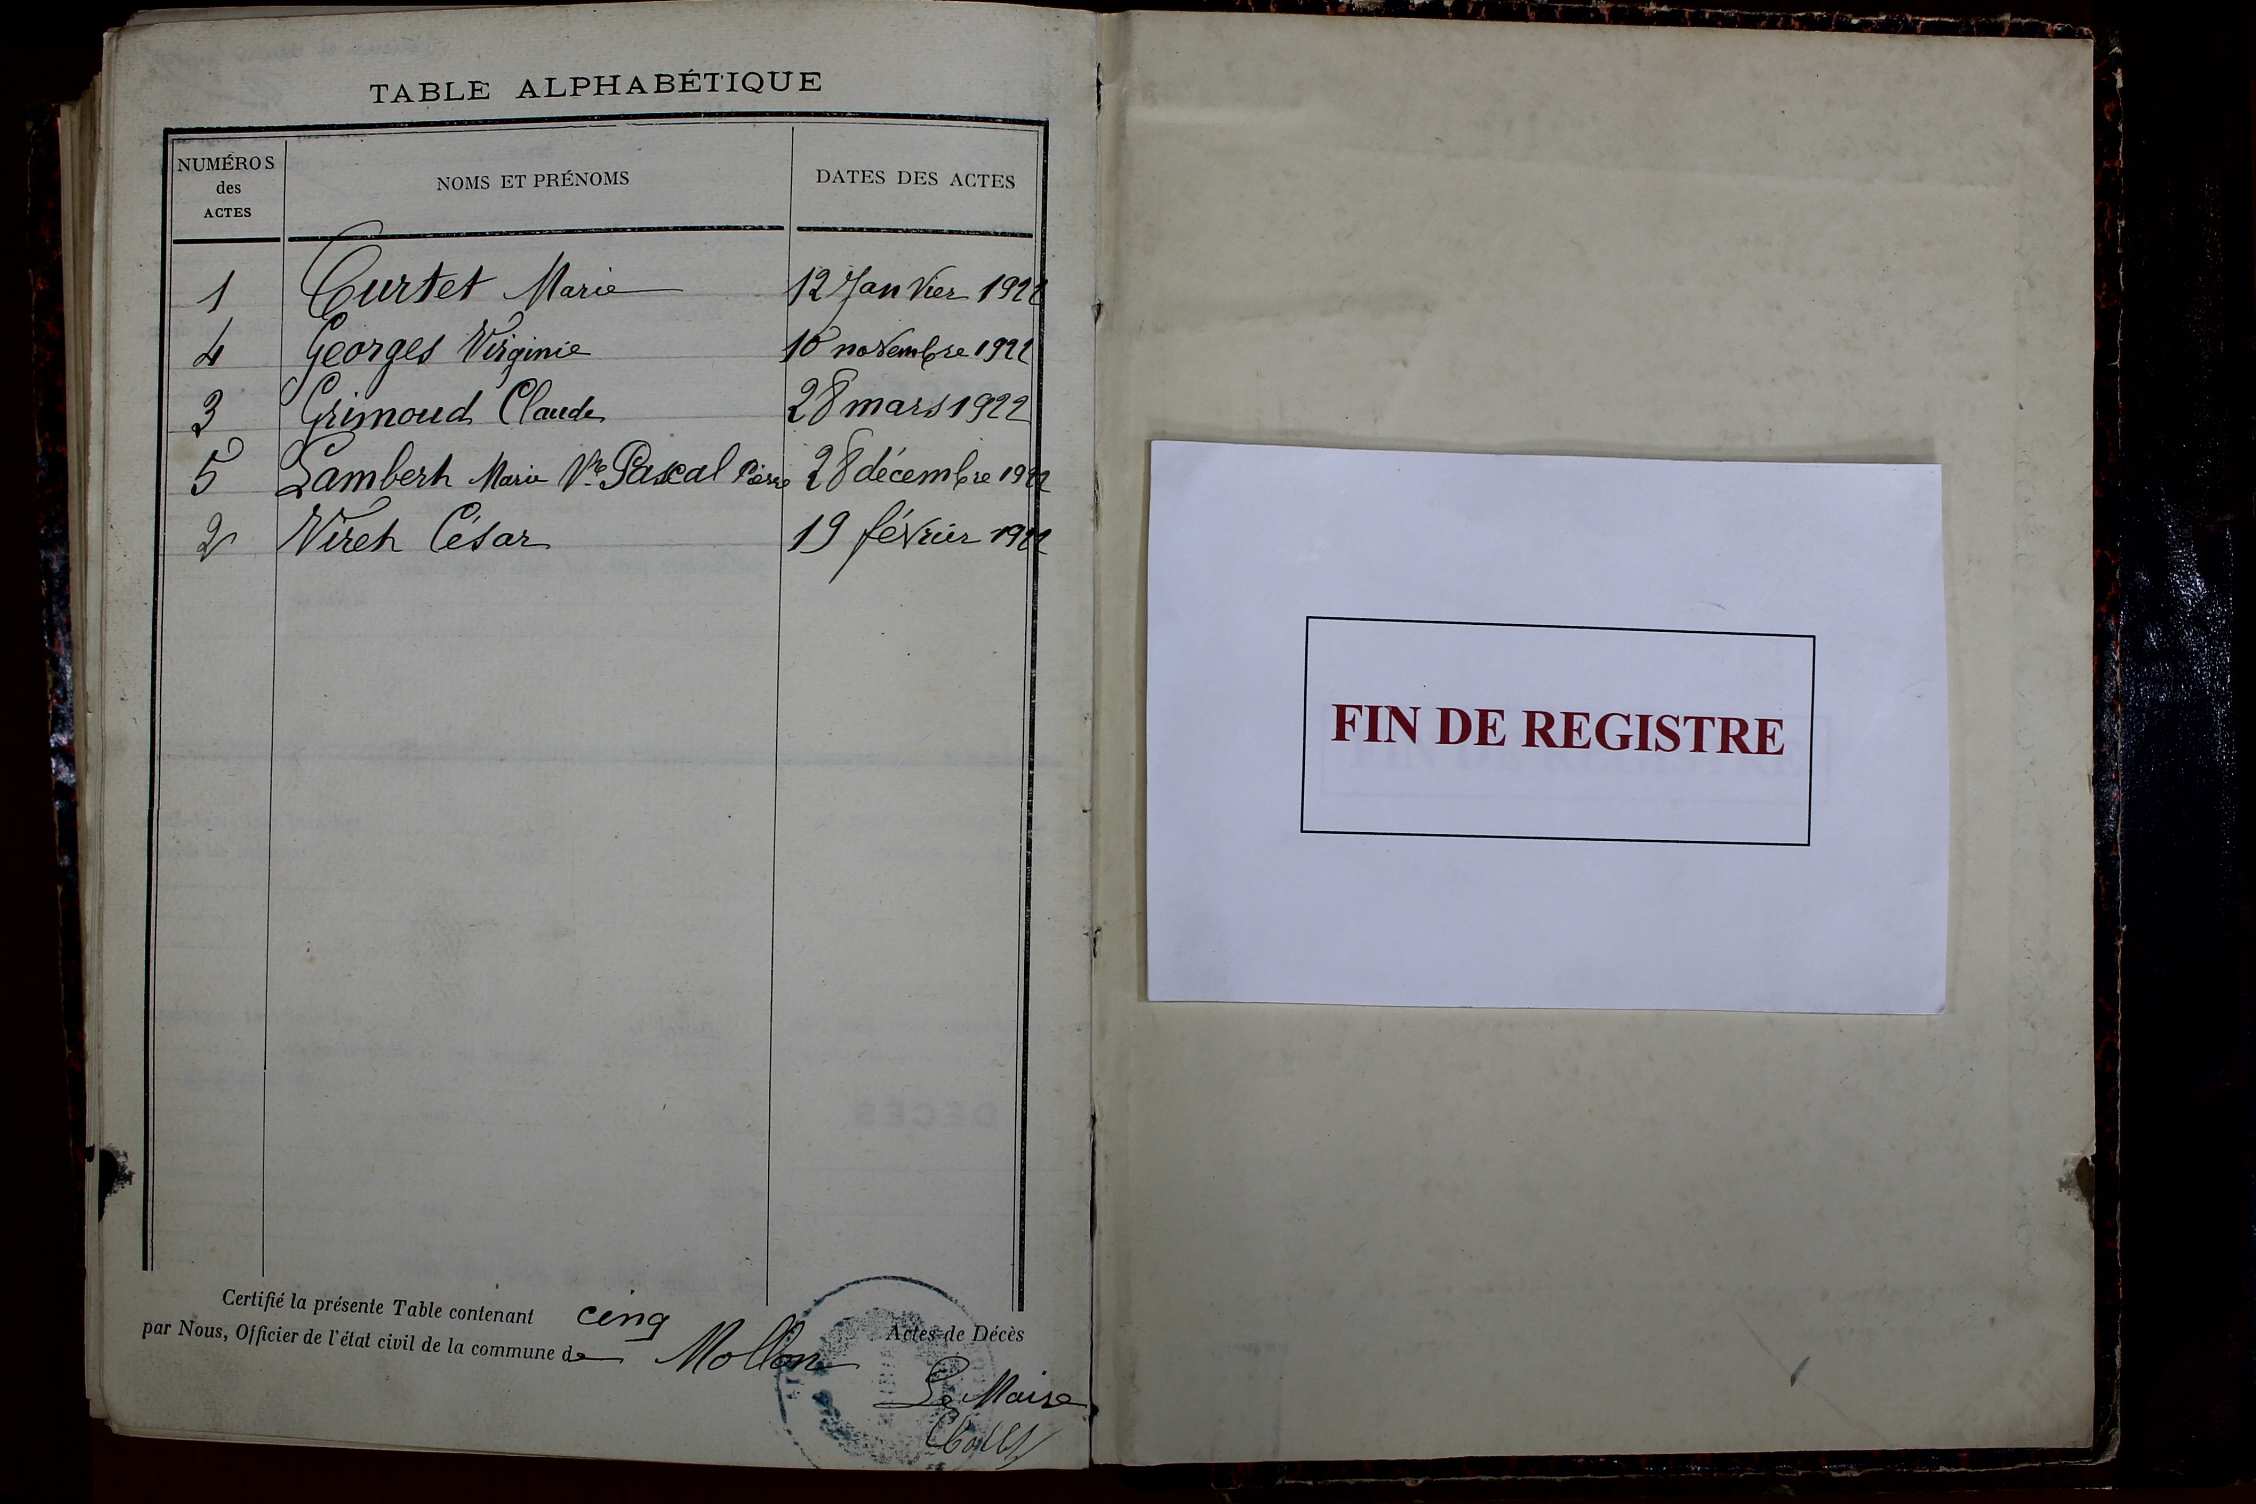 TABLE ALPHABÉTIQUE
NUMÉROS
des
ACTES
NOMS ET PRÉNOMS
DATES DES ACTES
1 Curtet Marie 12 Janvier 1922
4 Georges Virginie 10 novembre 1922
3 Grimoud Claude 28 mars 1922
5 Lambert Marie Vve Pascal Pierre 28 décembre 1922
2 Viret César 19 février 1922
Certifié la présente Table contenant cinq Actes de Décès
par Nous, Officier de l'état civil de la commune de Mollon
Le Maire
FIN DE REGISTRE